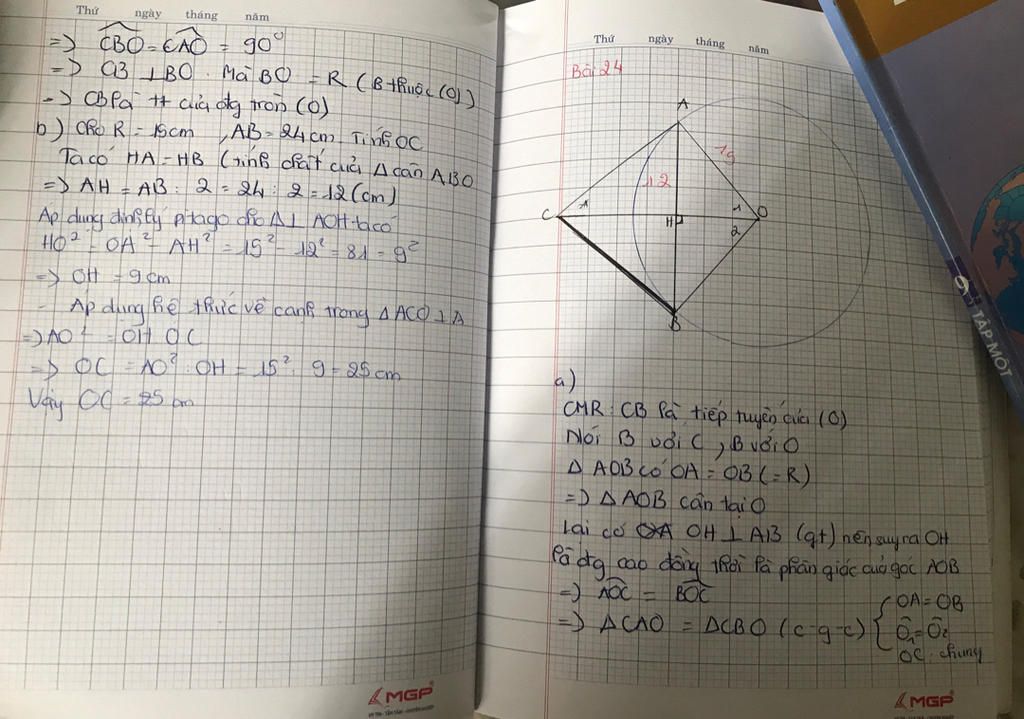 Thứ ngày tháng năm
=> CBO = CAO = 90°
=> CB ⊥ BO. Mà BO = R (B thuộc (O))
=> CB là tt của đtg tròn (O)
b) Cho R = 15cm, AB = 24cm. Tính OC
Ta có HA = HB (tính chất của Δ cân ABO
=> AH = AB : 2 = 24 : 2 = 12 (cm)
Ap dụng định lý pitago cho Δ⊥ AOH ta có
HO² = OA² - AH² = 15² - 12² = 81 = 9²
=> OH = 9cm
- Ap dụng hệ thức về cạnh trong Δ ACO ⊥ A
=> AO² = OH. OC
=> OC = AO² : OH = 15² : 9 = 25 cm
Vậy OC = 25 cm
MGP
Thứ ngày tháng năm
Bài 24
A
15
12
C
1
H
1
O
2
B
a)
CMR: CB là tiếp tuyến của (O)
Nối B với C, B với O
Δ AOB có OA = OB (=R)
=> Δ AOB cân tại O
Lại có OH ⊥ AB (gt) nên suy ra OH
là đtg cao đồng thời là phân giác của góc AOB
=> AOC = BOC
=> ΔCAO = ΔCBO (c-g-c) { OA = OB
Ô₁ = Ô₂
OC chung
MGP
9
TẬP MỘT